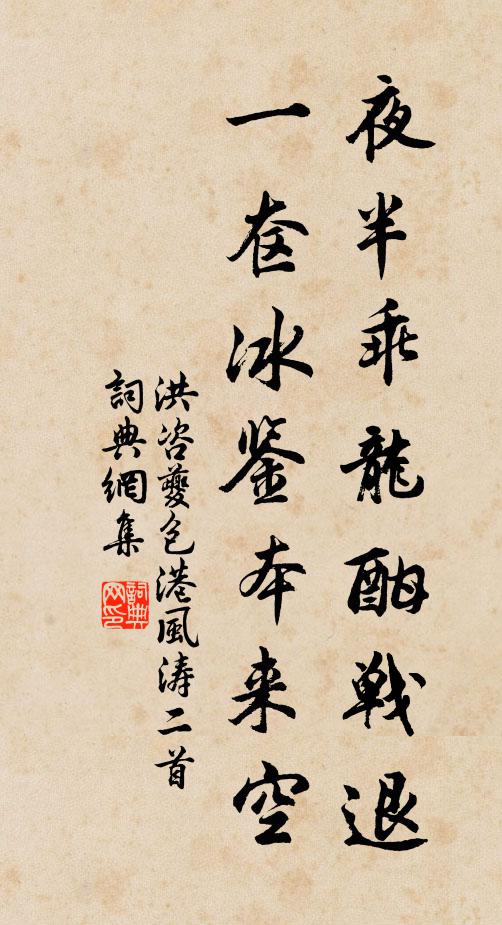 夜半乖龍酣戰退
一奁冰鉴本来空
洪咨夔包港風涛二首
詞典網集
詞典
网印